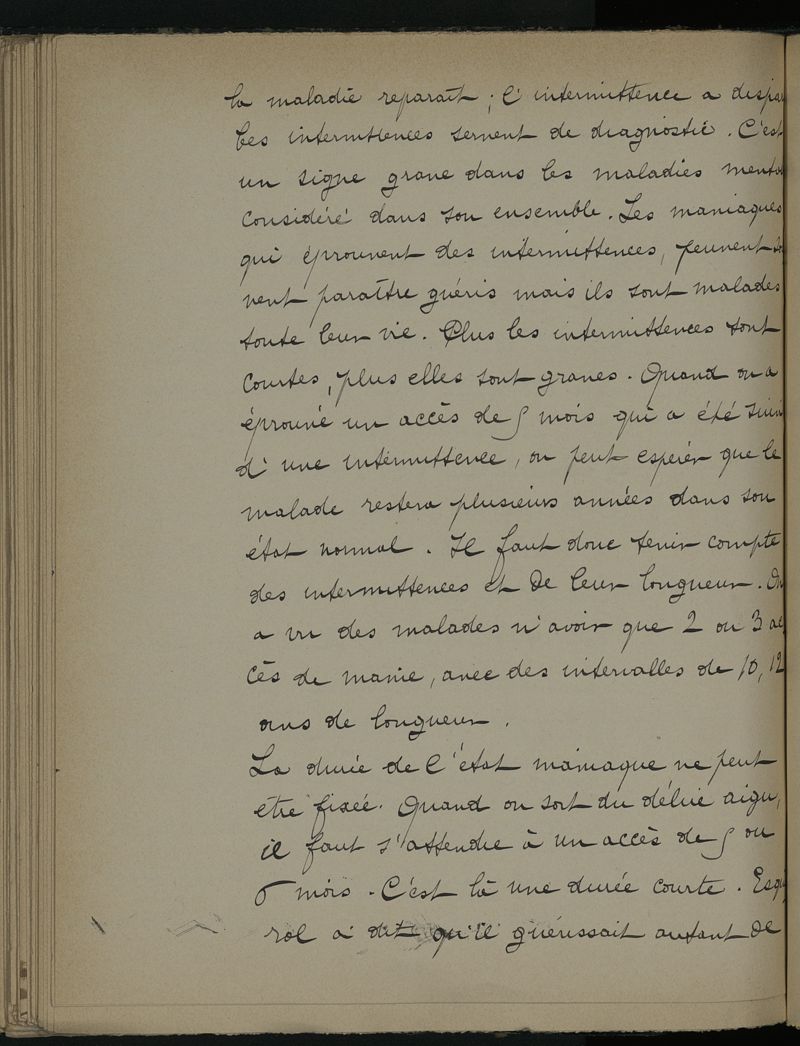 la maladie reparaît ; l'intermittence a dispar
Les intermittences servent de diagnostic. C'est
un signe grave dans les maladies menta
considéré dans son ensemble. Les maniaques
qui éprouvent des intermittences, peuvent so
vent paraître guéris mais ils sont malades
toute leur vie. Plus les intermittences sont
courtes, plus elles sont graves. Quand on a
éprouvé un accès de 5 mois qui a été suivi
d'une intermittence, on peut espérer que le
malade restera plusieurs années dans son
état normal. Il faut donc tenir compte
des intermittences et de leur longueur. On
a vu des malades n'avoir que 2 ou 3 ac
cès de manie, avec des intervalles de 10, 12
ans de longueur.
La durée de l'état maniaque ne peut
être fixée. Quand on sort du délire aigu,
il faut s'attendre à un accès de 5 ou
6 mois. C'est là une durée courte. Esqu
rol a dit qu'il guérissait autant de